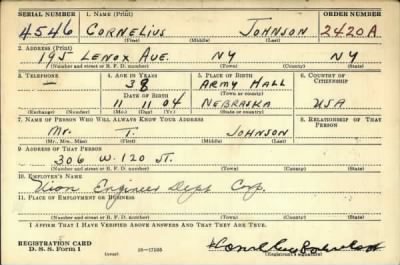 SERIAL NUMBER 1. NAME (Print) ORDER NUMBER
4546 CORNELIUS JOHNSON 2420A
(First) (Middle) (Last)
2. ADDRESS (Print)
195 LENOX AVE. NY NY
(Number and street or R. F. D. number) (Town) (County) (State)
3. TELEPHONE 4. AGE IN YEARS 5. PLACE OF BIRTH 6. COUNTRY OF CITIZENSHIP
— 38 ARMY HALL
DATE OF BIRTH (Town or county)
11 11 04 NEBRASKA USA
(Exchange) (Number) (Mo.) (Day) (Yr.) (State or country)
7. NAME OF PERSON WHO WILL ALWAYS KNOW YOUR ADDRESS 8. RELATIONSHIP OF THAT PERSON
Mr. T. JOHNSON
(Mr., Mrs., Miss) (First) (Middle) (Last)
9. ADDRESS OF THAT PERSON
306 W. 120 ST.
(Number and street or R. F. D. number) (Town) (County) (State)
10. EMPLOYER'S NAME
Engineer Dept Corp.
11. PLACE OF EMPLOYMENT OR BUSINESS
(Number and street or R. F. D. number) (Town) (County) (State)
I AFFIRM THAT I HAVE VERIFIED ABOVE ANSWERS AND THAT THEY ARE TRUE.
REGISTRATION CARD
D. S. S. Form 1 (over) (Registrant's signature)